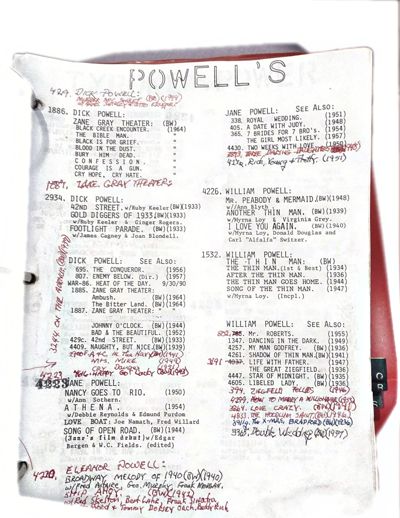 POWELL'S
4229. DICK POWELL:
1886. DICK POWELL:
ZANE GRAY THEATER: (BW)
BLACK CREEK ENCOUNTER. (1964)
THE BIBLE MAN. "
BLACK IS FOR GRIEF. "
BLOOD IN THE DUST. "
BURY HIM DEAD. "
C O N F E S S I O N . "
COURAGE IS A GUN. "
CRY HOPE, CRY HATE. "
1887. ZANE GRAY THEATERS
2934. DICK POWELL:
42ND STREET. w/Ruby Keeler (BW)(1933)
GOLD DIGGERS OF 1933(BW)(1933)
w/Ruby Keeler & Ginger Rogers.
FOOTLIGHT PARADE. (BW)(1933)
w/James Cagney & Joan Blondell.
DICK POWELL: See Also:
695. THE CONQUEROR. (1956)
807. ENEMY BELOW. (Dir.) (1957)
WAR-86. HEAT OF THE DAY. 9/30/90
1885. ZANE GRAY THEATER:
Ambush. (BW)(1964)
The Bitter Land. (BW)(1964)
1887. ZANE GRAY THEATER:
JOHNNY O'CLOCK. (BW)(1947)
BAD & THE BEAUTIFUL. (1952)
429c. 42nd STREET. (BW)(1933)
4409. NAUGHTY, BUT NICE.(BW)(1939)
4223
JANE POWELL:
NANCY GOES TO RIO. (1950)
w/Ann Sothern.
A T H E N A . (1954)
w/Debbie Reynolds & Edmund Purdom
LOVE BOAT: Joe Namath, Fred Willard
SONG OF OPEN ROAD. (BW)(1944)
(Jane's film debut)w/Edgar
Bergen & W.C. Fields. (edited)
4220. ELEANOR POWELL:
BROADWAY MELODY OF 1940 (BW)(1940)
w/Fred Astaire, Geo. Murphy, Frank Morgan.
SHIP AHOY. (BW)(1942)
w/Red Skelton, Bert Lahr, Frank Sinatra,
& Tommy Dorsey Orch, Buddy Rich
JANE POWELL: See Also:
338. ROYAL WEDDING. (1951)
405. A DATE WITH JUDY. (1948)
365. 7 BRIDES FOR 7 BRO's. (1954)
THE GIRL MOST LIKELY.
4430. TWO WEEKS WITH LOVE. (1950)
Rich, Young & Pretty. (1951)
4226. WILLIAM POWELL:
MR. PEABODY & MERMAID.(BW)(1948)
w//Ann Blyth
ANOTHER THIN MAN. (BW)(1939)
w/Myrna Loy & Virginia Grey.
I LOVE YOU AGAIN. (BW)(1940)
w/Myrna Loy, Donald Douglas and
Carl "Alfalfa" Switzer.
1532. WILLIAM POWELL:
THE THIN MAN: (BW)
THE THIN MAN.(1st & Best) (1934)
AFTER THE THIN MAN. (1936)
THE THIN MAN GOES HOME. (1944)
SONG OF THE THIN MAN. (1947)
w/Myrna Loy. (Incpl.)
WILLIAM POWELL: See Also:
Mr. ROBERTS. (1955)
1347. DANCING IN THE DARK. (1949)
4257. MY MAN GODFREY. (BW)(1936)
4261. SHADOW OF THIN MAN.(BW)(1941)
LIFE WITH FATHER. (1947)
THE GREAT ZIEGFELD. (1936)
4447. STAR OF MIDNIGHT. (BW)(1935)
4605. LIBELED LADY. (BW)(1936)
ZIEGFELD FOLLIES
HOW TO MARRY A MILLIONAIRE
LOVE CRAZY. (BW)(1941)
The EX-MRS. BRADFORD (BW)(1936)
Double Wedding (BW)(1937)